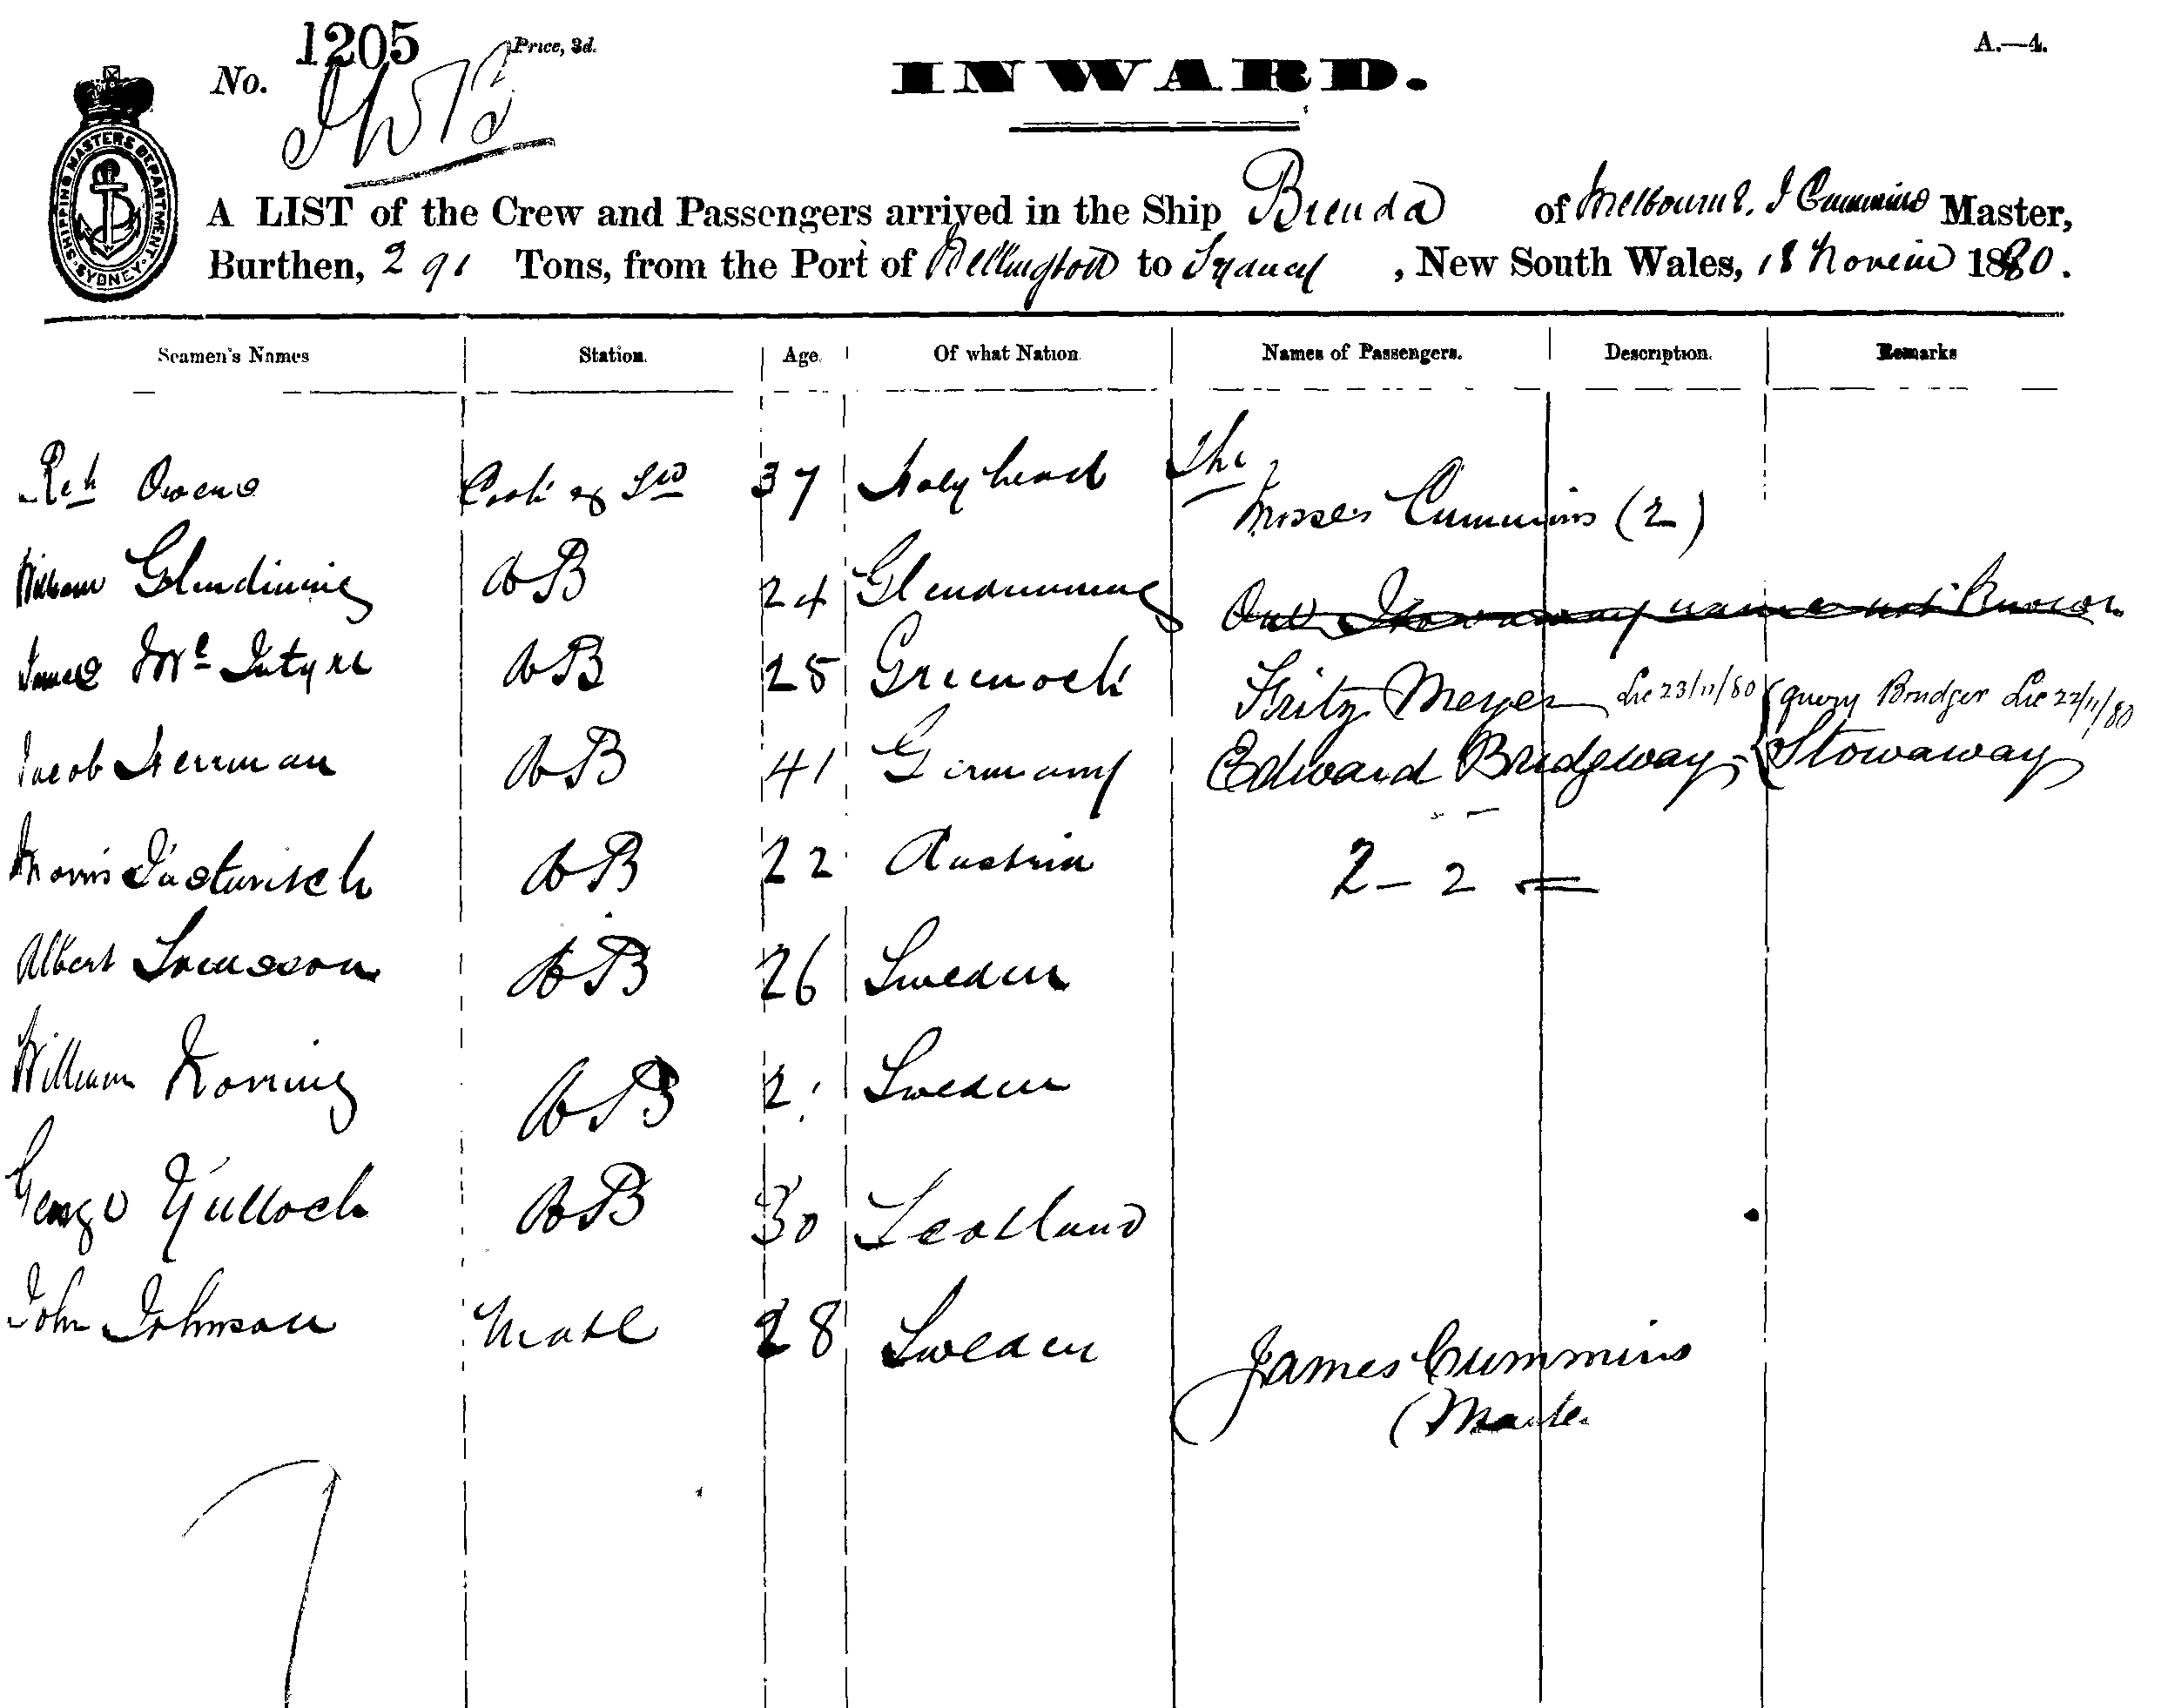 1205
No. Price, 3d.
INWARD.
A.—4.
SHIPPING MASTERS DEPARTMENT · SYDNEY ·
A LIST of the Crew and Passengers arrived in the Ship Brenda of Melbourne. J Cummins Master,
Burthen, 291 Tons, from the Port of Wellington to Sydney, New South Wales, 18 Novem 1880.
Seamen's Names Station. Age. Of what Nation Names of Passengers. Description. Remarks
Rch Owens Cook & Std 37 Holyhead The
Misses Cummins (2)
William Glendining AB 24 Glendinning One Stowaway name not Known
James Mc Intyre AB 25 Greenock Fritz Meyer 23/11/80 query Bridger 22/11/80
Jacob Herrman AB 41 Germany Edward Bridgeway Stowaway
Morris AB 22 Austria 2 – 2 =
Albert Svensson AB 26 Sweden
William AB 2 Sweden
George AB 30 Scotland
John Johnson Mate 28 Sweden
James Cummins
(Master